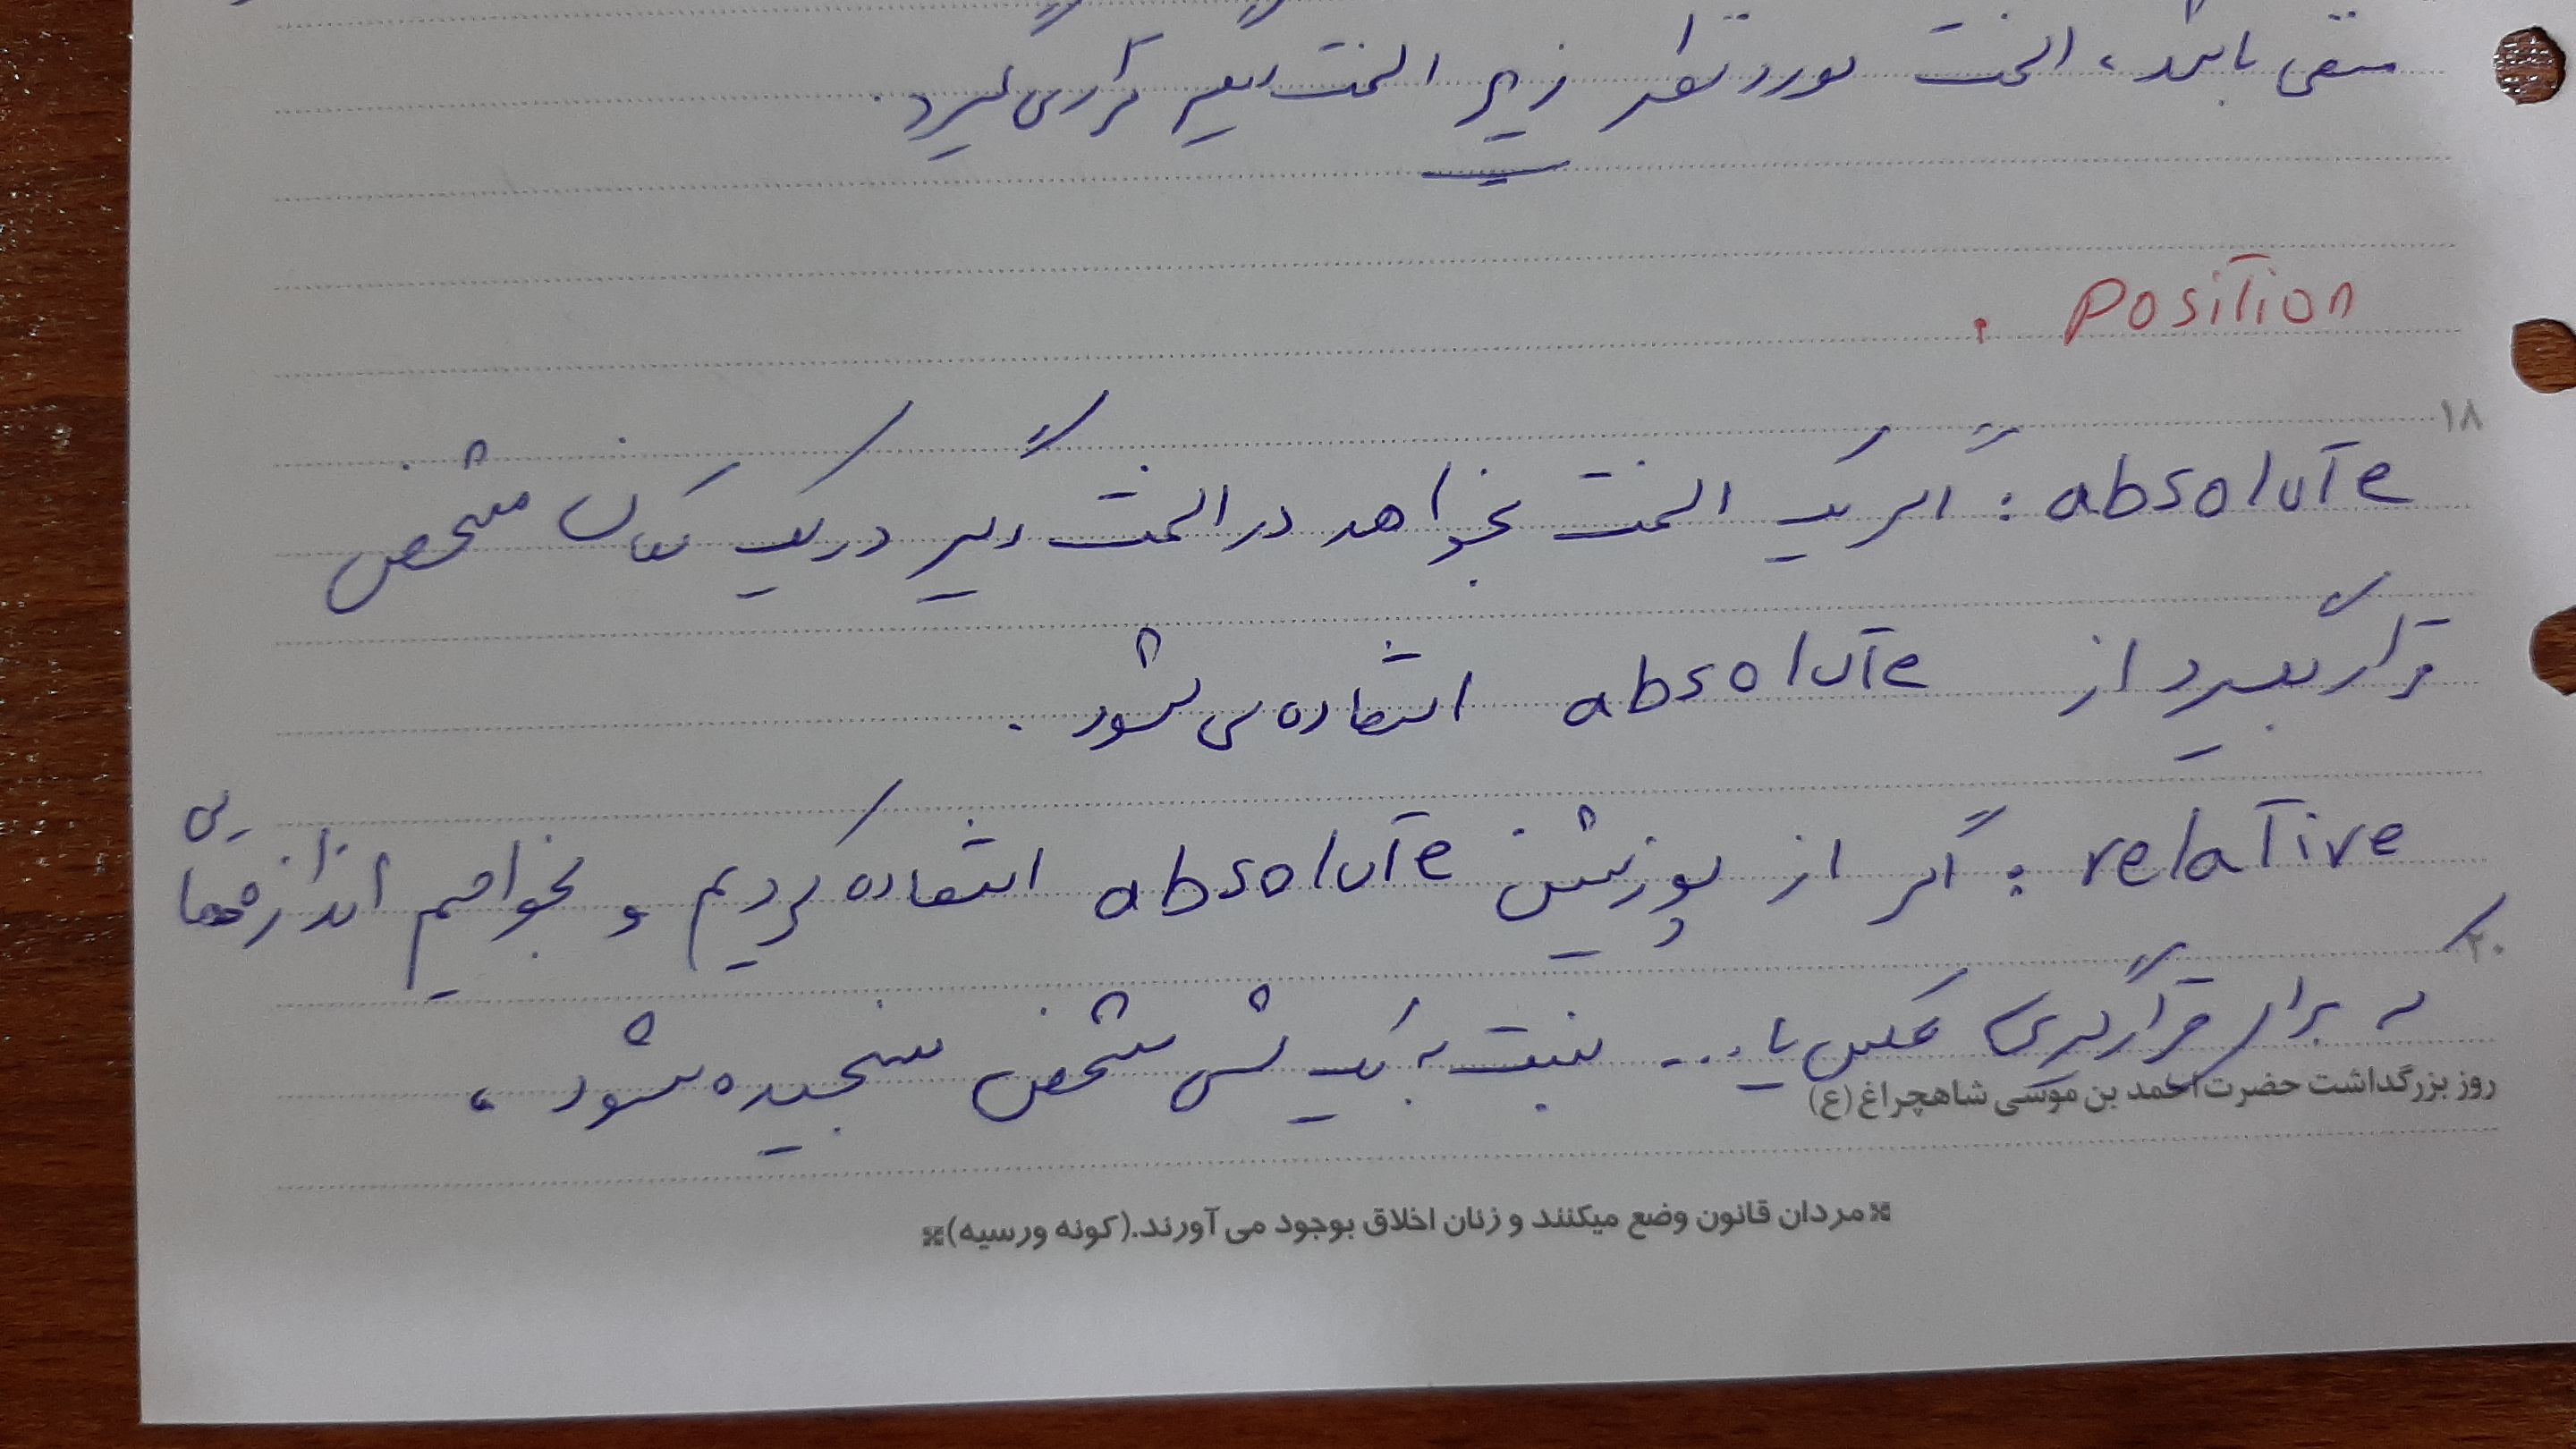 منفی باشد، المنت مورد نظر زیر المنت دیگر قرار می گیرد.
position :
۱۸
absolute : اگر یک المنت بخواهد در المنت دیگر در یک مکان مشخص
قرار بگیرد از absolute استفاده می شود .
relative : اگر از پوزیشن absolute استفاده کردیم و بخواهیم اندازه هایی
۲۰
که برای قرارگیری عکس یا ... نسبت به یک شی مشخص سنجیده شود ،
روز بزرگداشت حضرت احمد بن موسی شاهچراغ (ع)
مردان قانون وضع میکنند و زنان اخلاق بوجود می آورند.(کونه ورسیه)